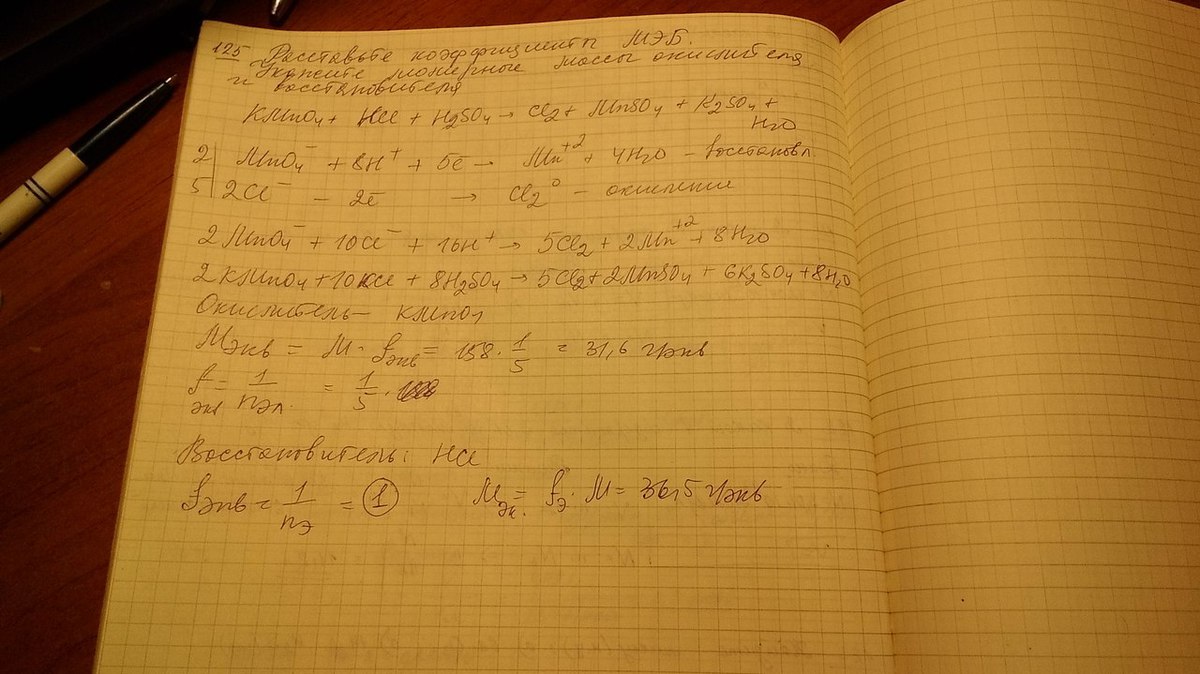 125 Расставьте коэффициенты МЭБ.
Укажите молярные массы окислителя
и восстановителя
KMnO₄ + HCl + H₂SO₄ → Cl₂ + MnSO₄ + K₂SO₄ +
H₂O
2 | MnO₄⁻ + 8H⁺ + 5e → Mn⁺² + 4H₂O – восстановл.
5 | 2Cl⁻ – 2e → Cl₂⁰ – окисление
2MnO₄⁻ + 10Cl⁻ + 16H⁺ → 5Cl₂ + 2Mn⁺² + 8H₂O
2KMnO₄ + 10KCl + 8H₂SO₄ → 5Cl₂ + 2MnSO₄ + 6K₂SO₄ + 8H₂O
Окислитель – KMnO₄
Mэкв = M · fэкв = 158 · 1/5 = 31,6 г/экв
fэкв = 1/nэл. = 1/5 ·
Восстановитель: HCl
fэкв = 1/nэ = 1 Mэк. = fэ · M = 36,5 г/экв